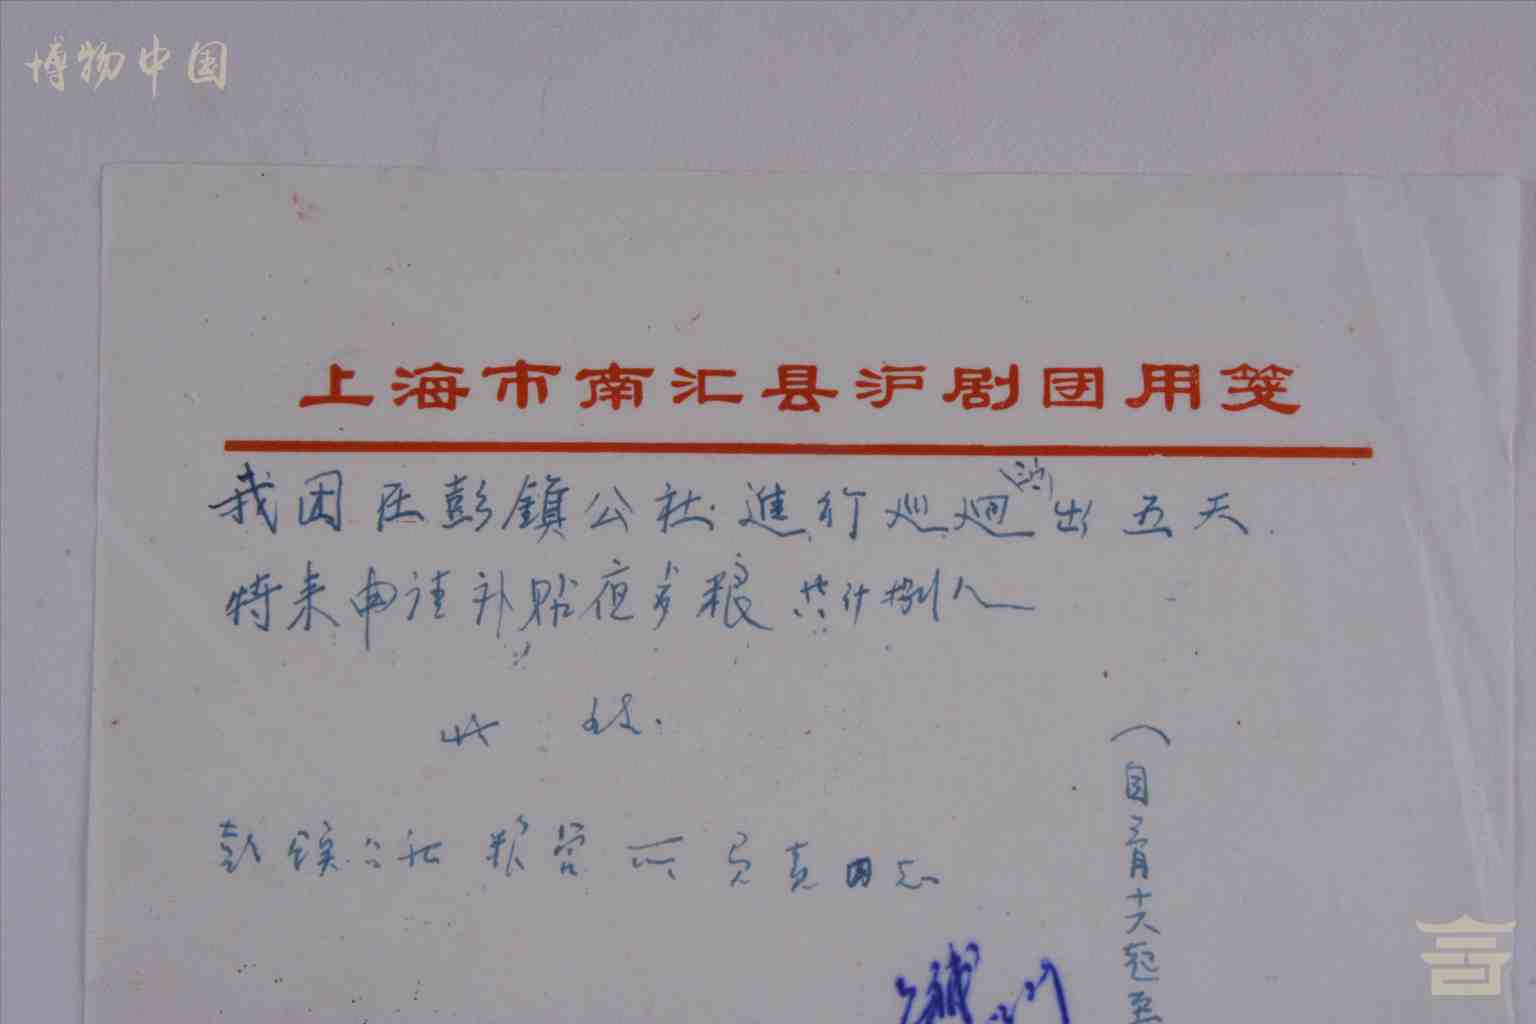 博物中国
上海市南汇县沪剧团用笺
我因在彭鎮公社進行巡迴演出五天.
特来申请补贴夜歺粮 共计捌人
此 致.
彭鎮公社粮管所负责同志
(自三月十六起至